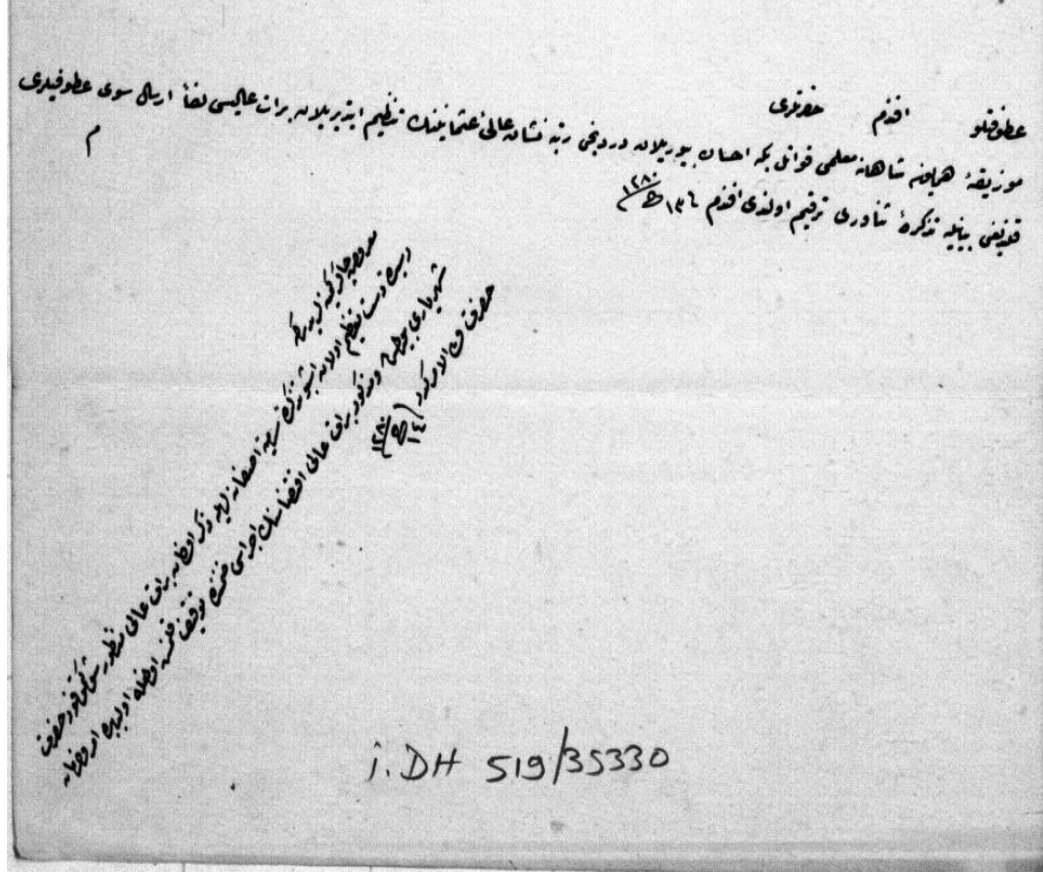 عطوفتلو افندم حضرتلری
موزیقهٔ همایون شاهانه معلمی قواتلی بکه احسان بیوریلان دردنجی رتبه نشان عالیٔ عثمانینك تنظیم ایتدیریلان برات عالیسی لفاً ارسال سوی عطوفیلری
قلندیغی بیانیله تذکرهٔ ثناوری ترقیم اولندی افندم ١٢٨٠
م
معروض چاکر کمینه لریدر که
رسیدهٔ دست تعظیم اولان اشبو تذکرهٔ سامیهٔ آصفانه لریله ذکر اولنان برات عالی منظور شوکتموفور حضرت
شهریاری بیورلمش ومذکور برات عالی اقتضاسنك اجراسی ضمننده توقیف قلنمش اولمغله اولبابده امر وفرمان
حضرت ولی الامرکدر ١٤ ١٢٨٠
İ.DH 519/35330